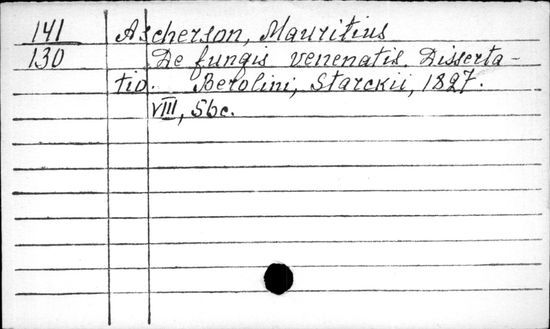 141 Ascherson, Mauritius
130 De fungis venenatis. Disserta-
tio. Berolini, Starckii, 1827.
VIII, 56c.